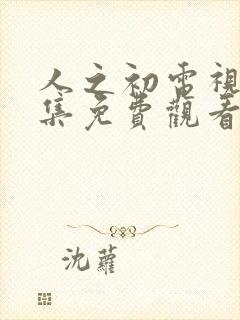 人之初電視
集免費觀看
沈蘿